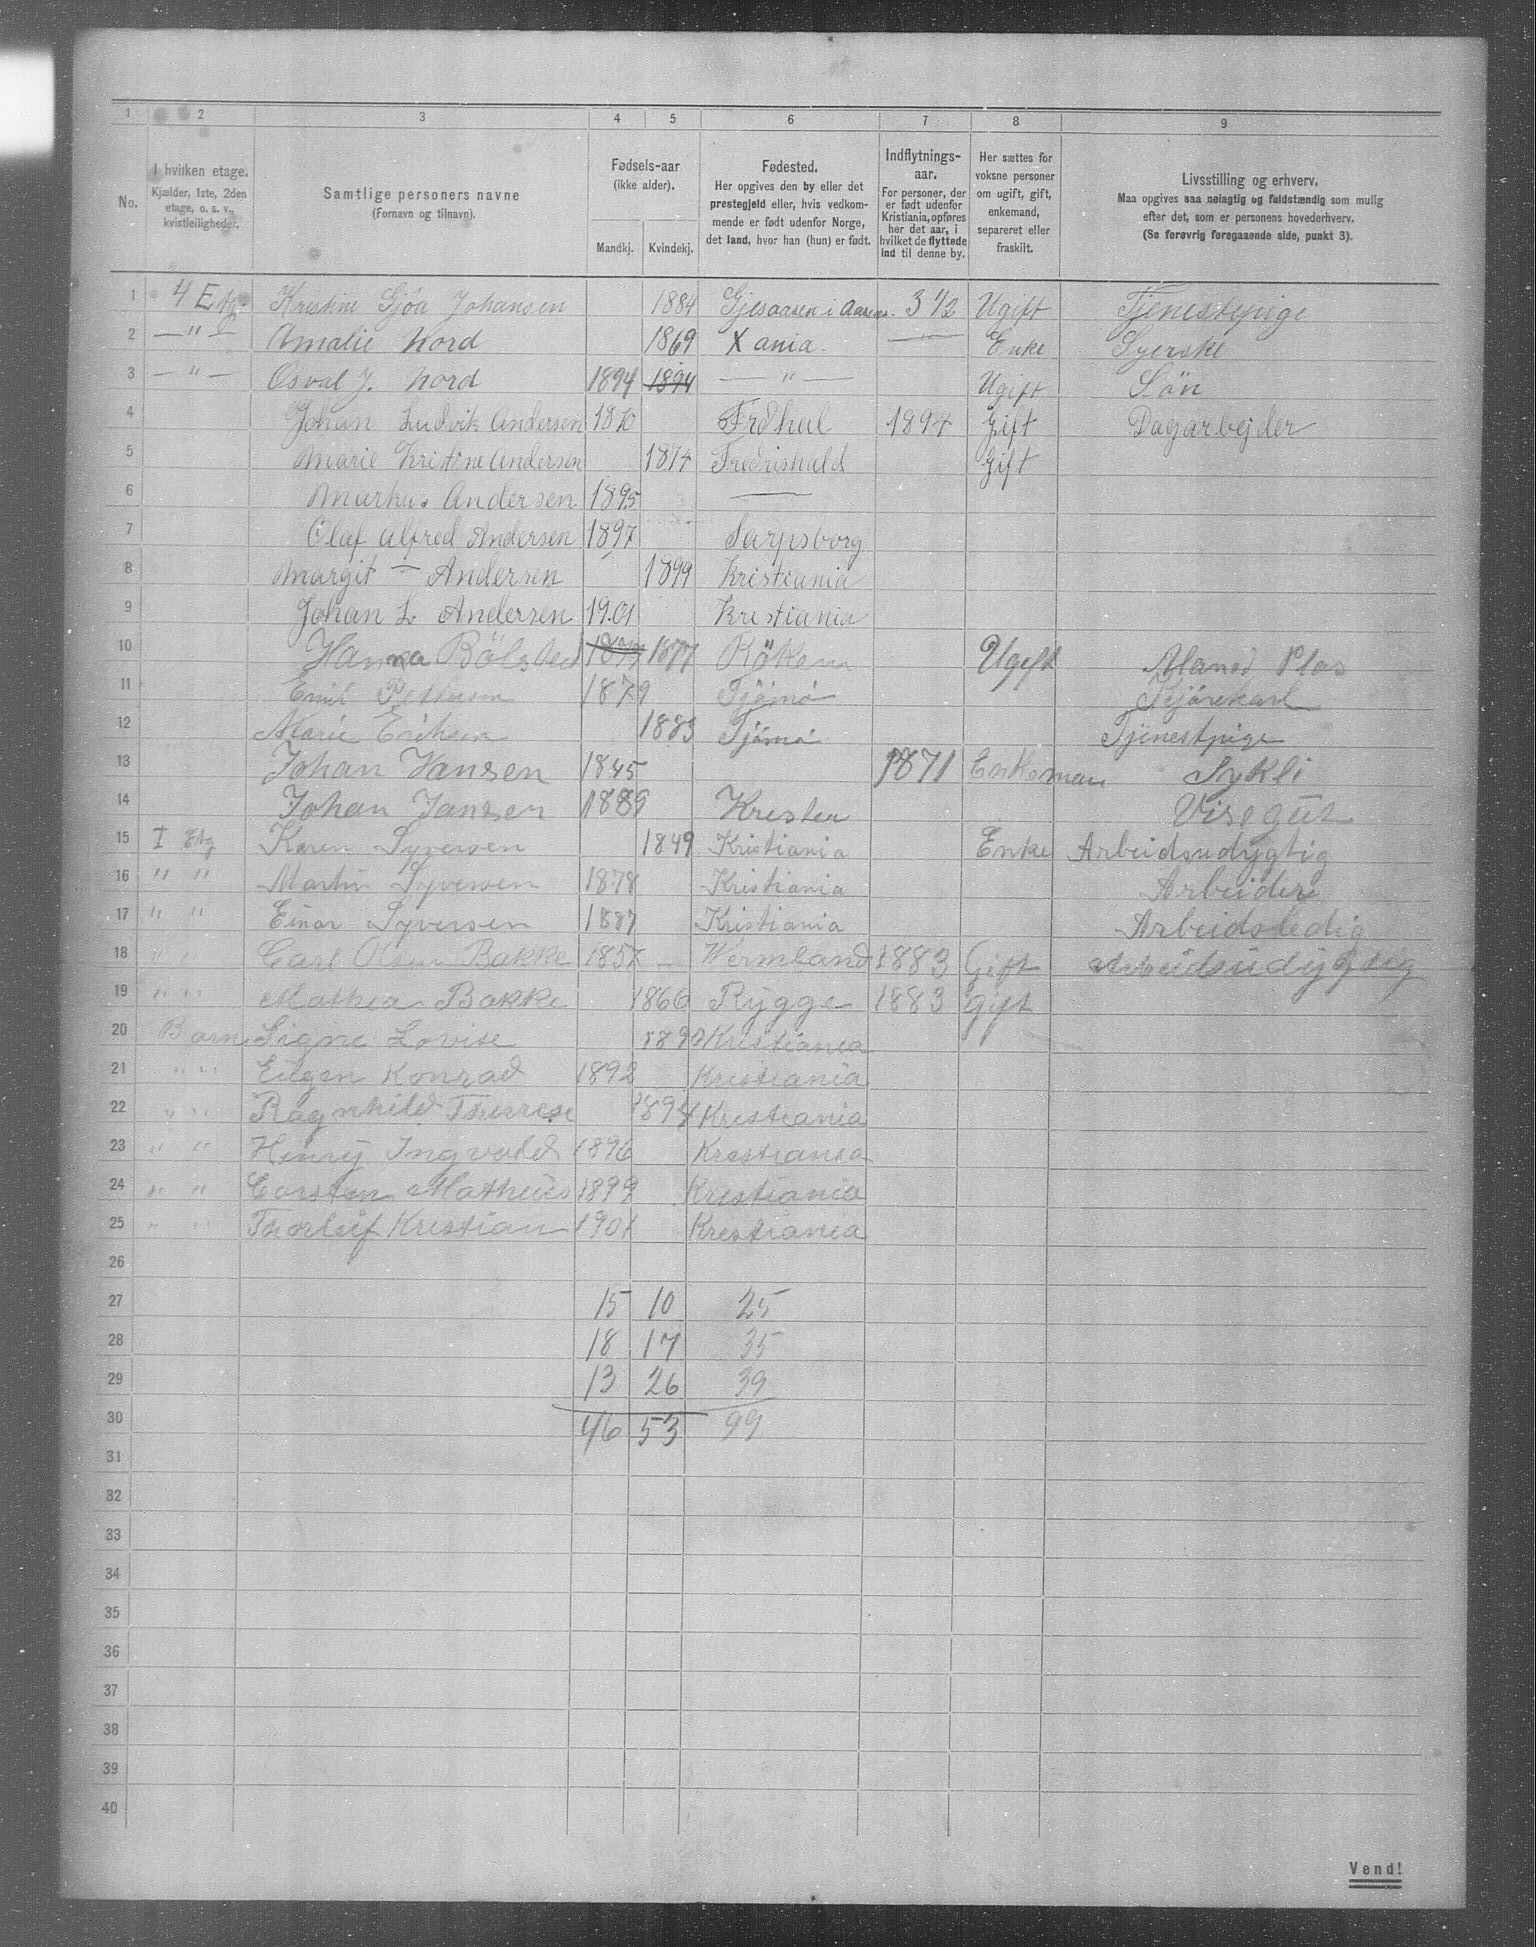 1 2 3 4 5 6 7 8 9
No.
I hvilken etage.
Kjælder, 1ste, 2den
etage, o. s. v.,
kvistleiligheder.
Samtlige personers navne
(Fornavn og tilnavn).
Fødsels-aar
(ikke alder).
Mandkj. Kvindekj.
Fødested.
Her opgives den by eller det
prestegjeld eller, hvis vedkom-
mende er født udenfor Norge,
det land, hvor han (hun) er født.
Indflytnings-
aar.
For personer, der
er født udenfor
Kristiania, opføres
her det aar, i
hvilket de flyttede
ind til denne by.
Her sættes for
voksne personer
om ugift, gift,
enkemand,
separeret eller
fraskilt.
Livsstilling og erhverv.
Maa opgives saa nøiagtig og fuldstændig som mulig
efter det, som er personens hovederhverv.
(Se forøvrig foregaaende side, punkt 3).
1 4 Etg. Kristine Gjöa Johansen 1884 Gjesaasen i 3 1/2 Ugift Tjenestepige
2 — " — Amalie Nord 1869 Xania. — Enke Syerske
3 — " — Osval J. Nord 1894 1894 — " — Ugift Sön
4 Johan Ludvik Andersen 1870 Frdhal 1894 Gift Dagarbejder
5 Marie Kristine Andersen 1874 Fredrishald Gift
6 Markus Andersen 1895 —
7 Olaf Alfred Andersen 1897 Sarpsborg
8 Margit — Andersen 1899 Kristiania
9 Johan L Andersen 1901 Kristiania
10 Hanna 1877 Röken Ugift
11 Emil Pettersen 1879 Tjömö
12 Marie Eriksen 1883 Tjömö Tjenestpige
13 Johan Hansen 1845 1871 Enkeman
14 Johan Jansen 1889 Kresten Visegut
15 I Etg Karen Syversen 1849 Kristiania Enke Arbeidsudygtig
16 " " Martin Syversen 1878 Kristiania Arbeider
17 " " Einar Syversen 1887 Kristiania Arbeidsledig
18 " " Carl Olsen Bakke 1857 — Wermland 1883 Gift Arbeidsudygtig
19 " " Mathea Bakke 1866 Rygge 1883 gift
20 Barn Signe Lovise 1890 Kristiania
21 " " Eugen Konrad 1892 Kristiania
22 " " Ragnhild Therese 1894 Kristiania
23 " " Henry Ingvald 1896 Kristiania
24 " " Carsten Matheus 1899 Kristiania
25 " " Thorleif Kristian 1901 Kristiania
26
27 15 10 25
28 18 17 35
29 13 26 39
30 46 53 99
31
32
33
34
35
36
37
38
39
40
Vend!